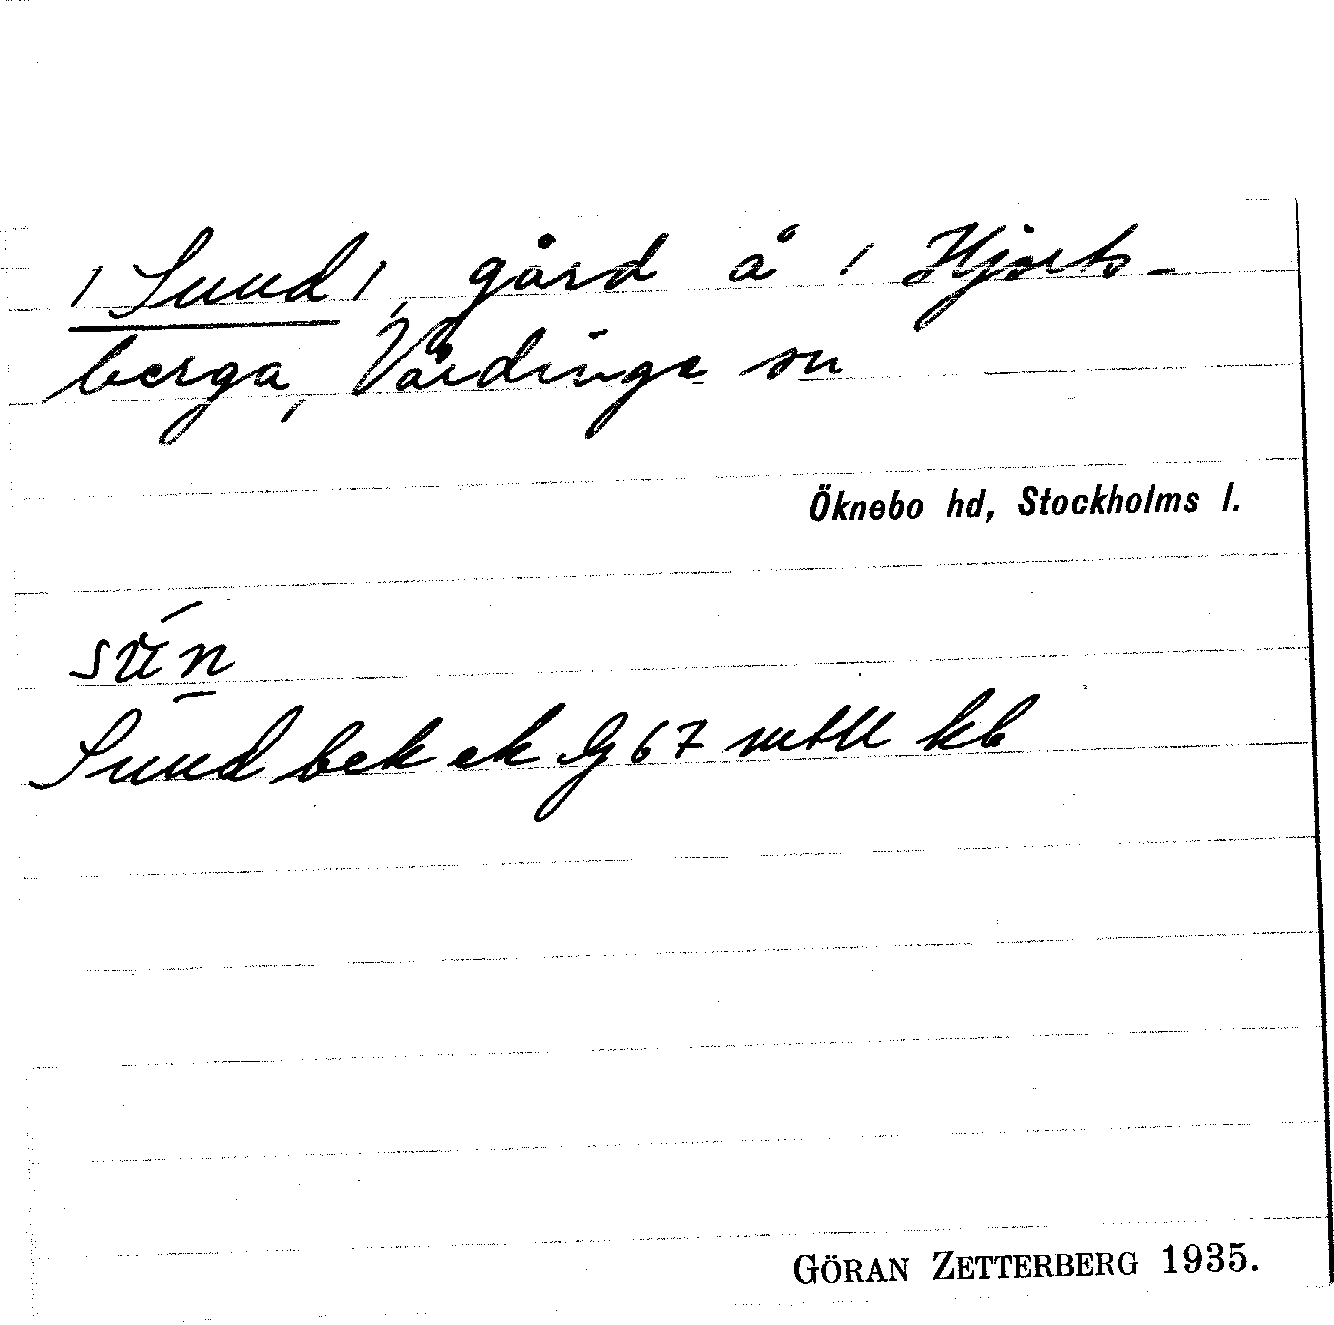 1 Sund 1, gård å 1 Hjorts-
berga, Vårdinge sn
Öknebo hd, Stockholms l.
Sund bek ek G 67 mtll kb
GÖRAN ZETTERBERG 1935.